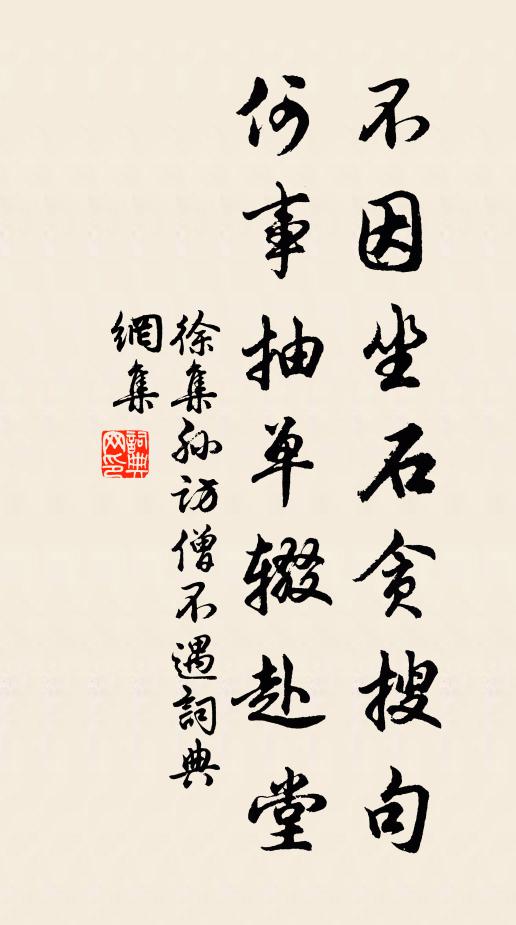 不因坐石贪搜句
何事抽单辍赴堂
徐集孙访僧不遇詞典
網集
詞典
网印